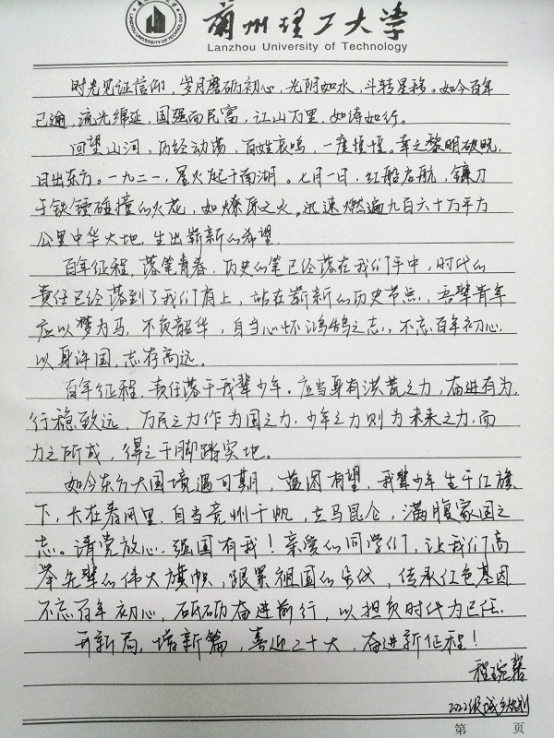 兰州理工大学
Lanzhou University of Technology
时光见证信仰，岁月磨砺初心，光阴如水，斗转星移。如今百年
已逾，流光绵延，国强而民富，江山万里，如诗如行。
回望山河，历经动荡，百姓哀鸣，一度惶惶。幸之黎明破晓，
日出东方。一九二一，星火起于南湖。七月一日，红船启航，镰刀
于铁锤碰撞的火花，如燎原之火，迅速燃遍九百六十万平方
公里中华大地，生出崭新的希望。
百年征程，落笔青春，历史的笔已经落在我们手中，时代的
责任已经落到了我们肩上，站在崭新的历史节点，吾辈青年
应以梦为马，不负韶华，自当心怀鸿鹄之志，不忘百年初心，
以身许国，志存高远。
百年征程，责任落于我辈少年。应当身有洪荒之力，奋进有为，
行稳致远，万民之力作为国之力，少年之力则为未来之力，而
力之所成，得之于脚踏实地。
如今东方大国境遇可期，蓝图有望，我辈少年生于红旗
下，长在春风里，自当竞州千帆，立马昆仑，满腹家国之
志。请党放心，强国有我！亲爱的同学们，让我们高
举先辈的伟大旗帜，跟紧祖国的步伐，传承红色基因
不忘百年初心，砥砺奋进前行，以担负时代为己任
开新局，谱新篇，喜迎二十大，奋进新征程！
程琬馨
2022级城乡规划
第 页